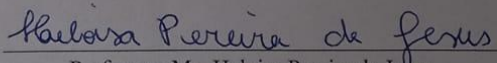 Heloisa Pereira de Jesus